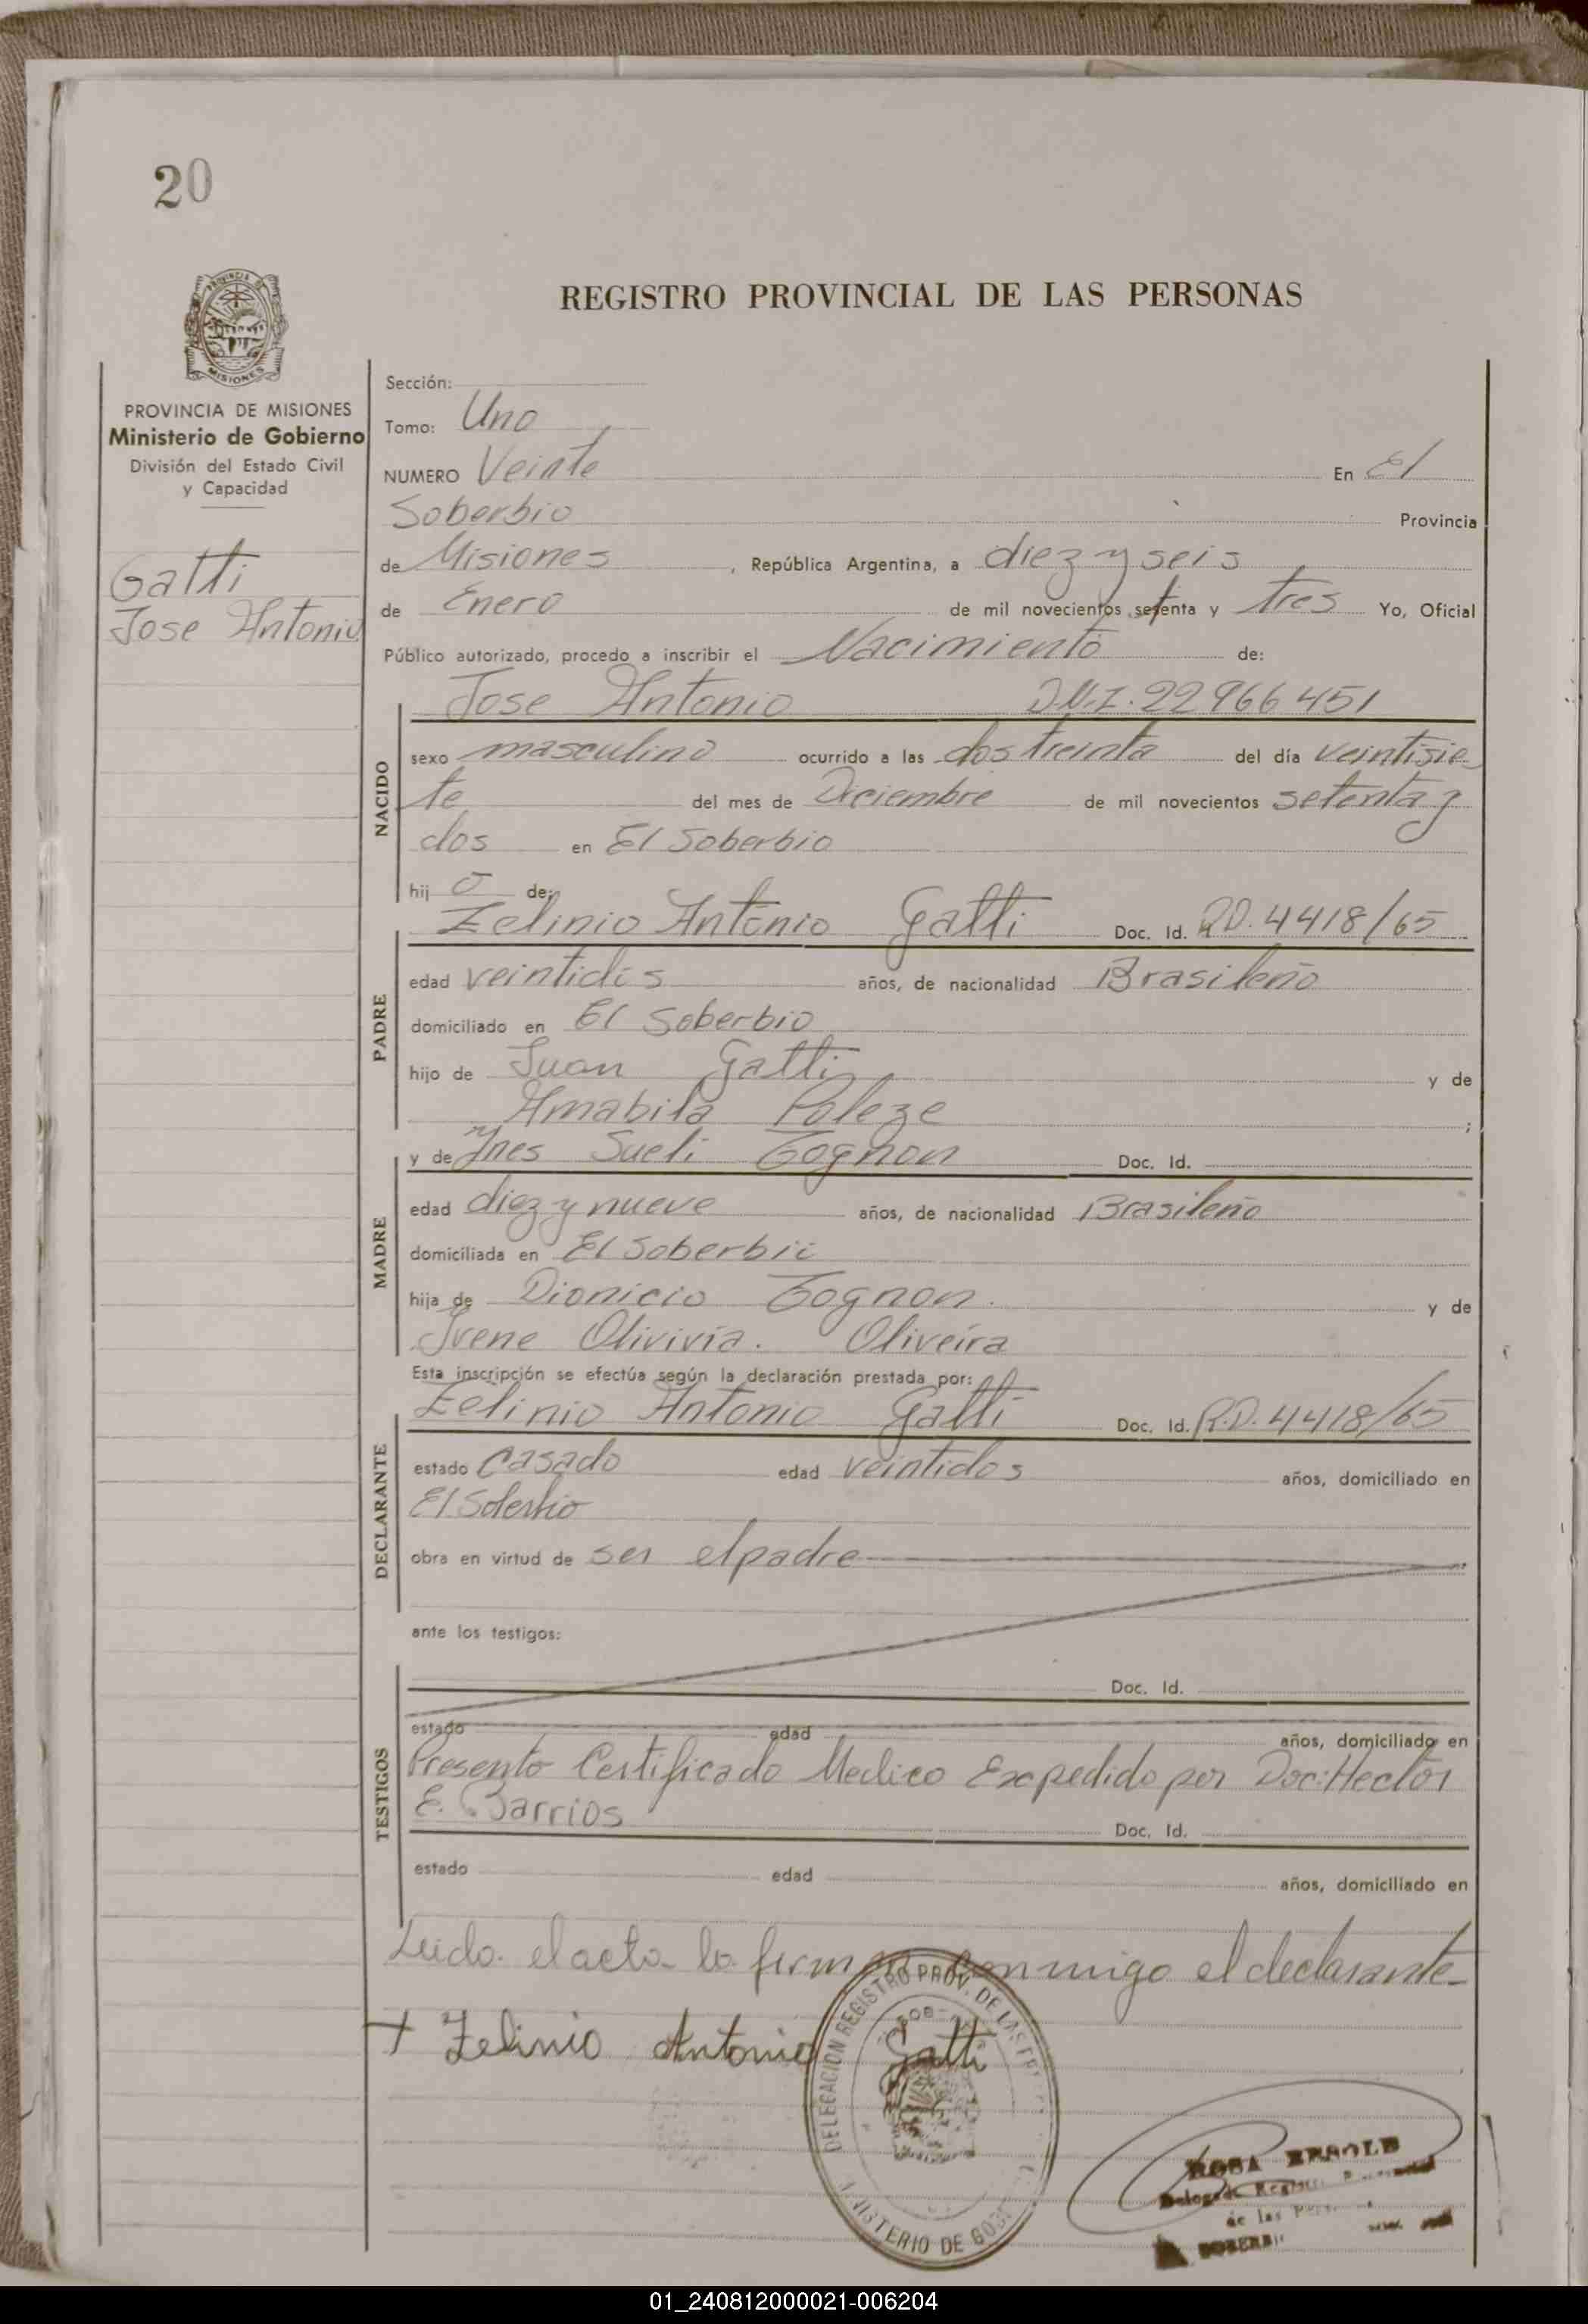 20
REGISTRO PROVINCIAL DE LAS PERSONAS
PROVINCIA DE MISIONES
Ministerio de Gobierno
División del Estado Civil
y Capacidad
Gatti
Jose Antonio
Sección:
Tomo: Uno
NUMERO Veinte En El
Soberbio Provincia
de Misiones, República Argentina, a diez y seis
de Enero de mil novecientos setenta y tres Yo, Oficial
Público autorizado, procedo a inscribir el Nacimiento de:
Jose Antonio D.N.I. 22966451
NACIDO
sexo masculino ocurrido a las dos treinta del día veintisie
te del mes de Diciembre de mil novecientos setenta y
dos en El Soberbio
hijo de:
Zelinio Antonio Gatti Doc. Id. R.D. 4418/65
PADRE
edad veintidos años, de nacionalidad Brasileño
domiciliado en El Soberbio
hijo de Juan Gatti y de
Amabila Poleze ;
y de Ynes Sueli Tognon Doc. Id.
MADRE
edad diez y nueve años, de nacionalidad Brasileño
domiciliada en El Soberbio
hija de Dionicio Tognon. y de
Irene Olivivia. Oliveira
Esta inscripción se efectúa según la declaración prestada por:
Zelinio Antonio Gatti Doc. Id. R.D. 4418/65
DECLARANTE
estado Casado edad veintidos años, domiciliado en
El Soberbio
obra en virtud de ser el padre
ante los testigos:
Doc. Id.
TESTIGOS
estado edad años, domiciliado en
Presento Certificado Medico Expedido por Doc: Hector
E. Barrios Doc. Id.
estado edad años, domiciliado en
Leido el acto lo firman conmigo el declarante
+ Zelinio Antonio Gatti
DELEGACION REGISTRO PROV. DE LAS
MINISTERIO DE GOB
ROSA
de las
SOBERBIO
01_240812000021-006204